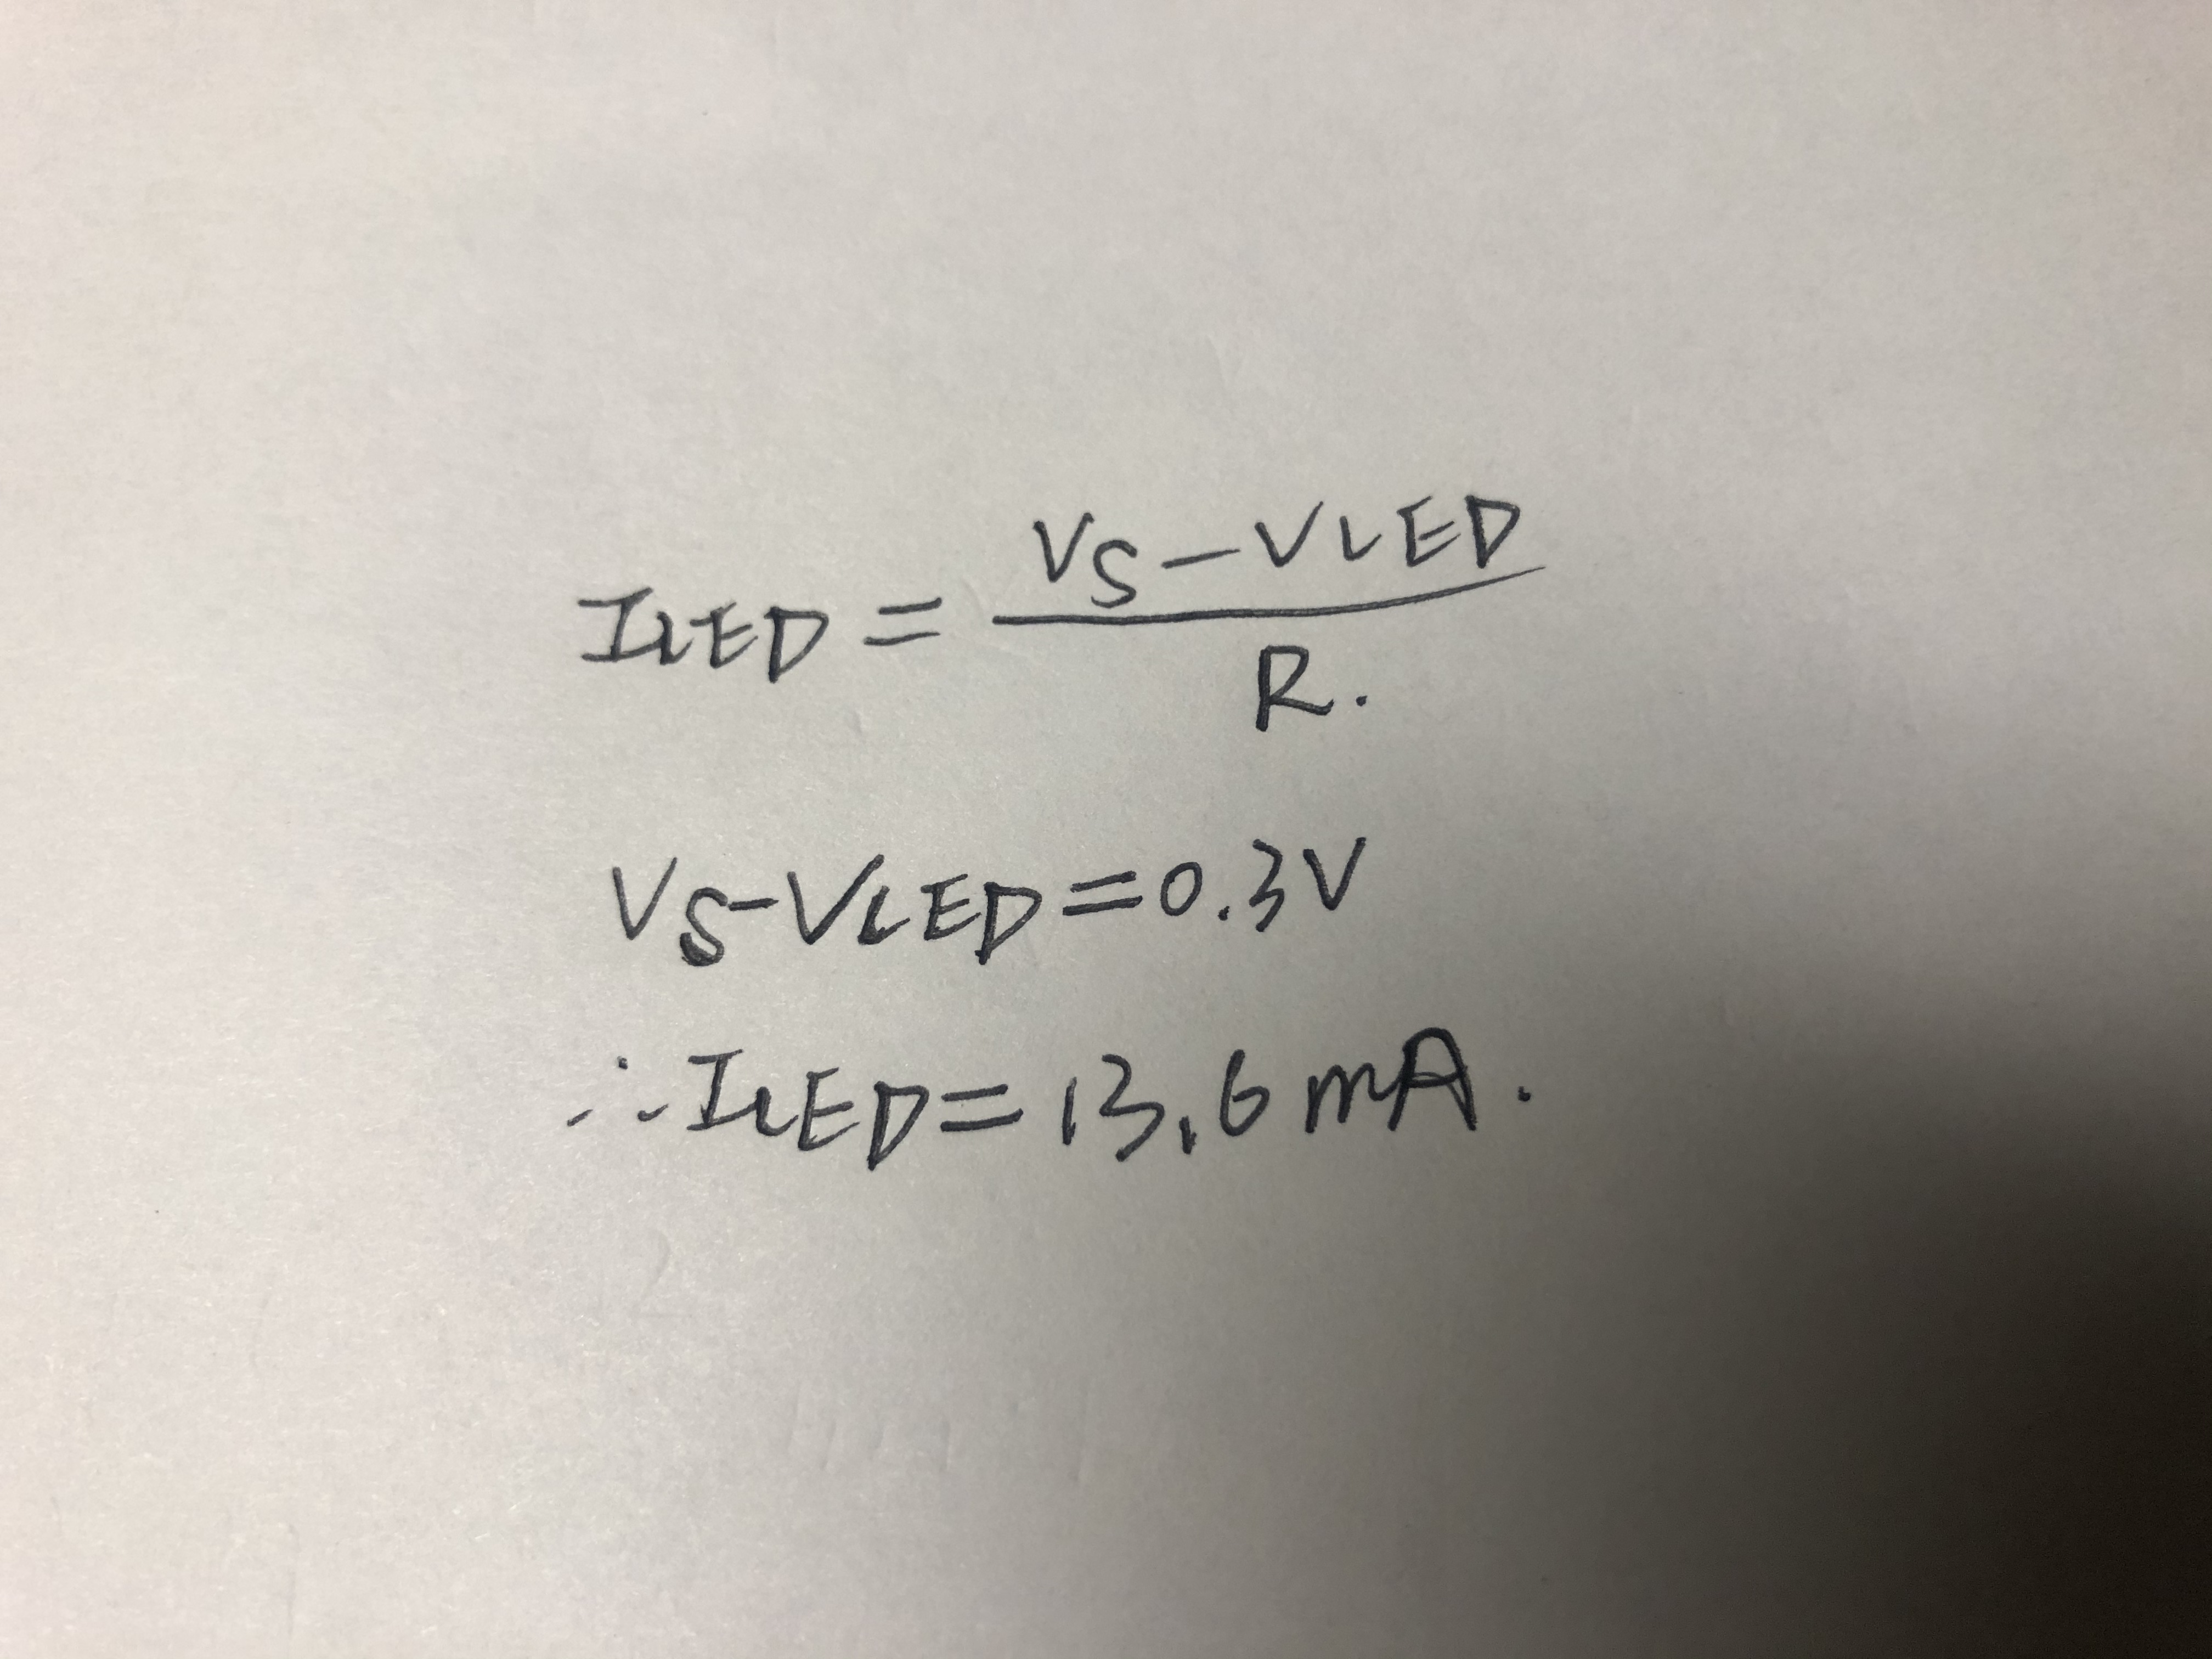 ILED = VS - VLED / R.
VS - VLED = 0.3V
∴ ILED = 13.6 mA.